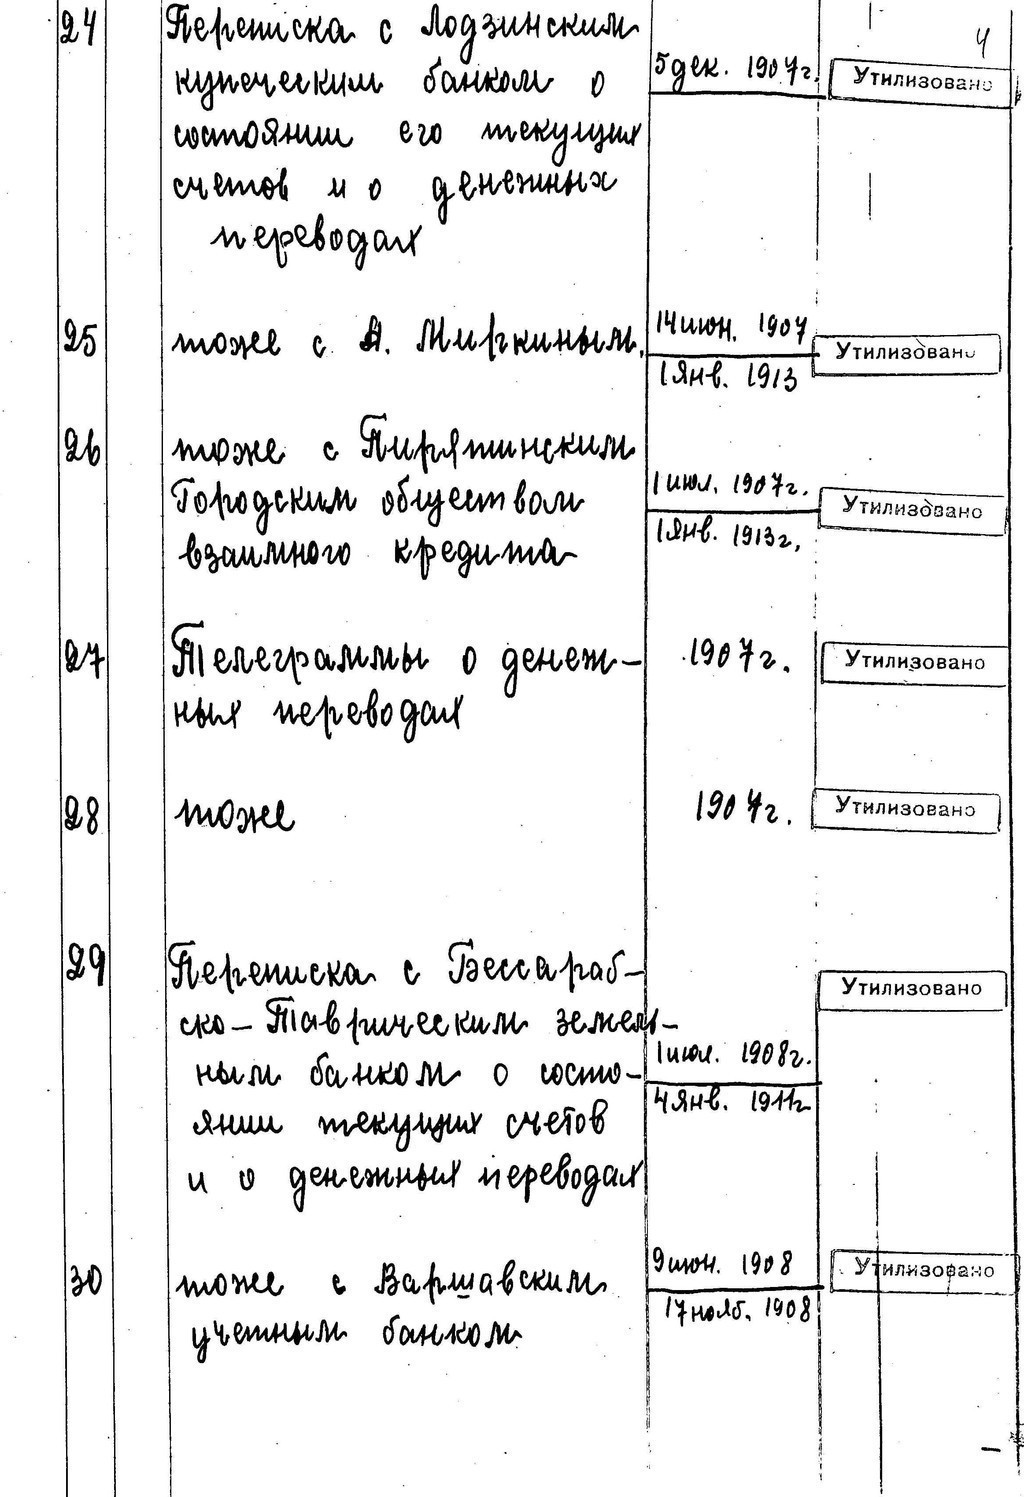 4
24 Переписка с Лодзинским
купеческим банком о
состоянии его текущих
счетов и о денежных
переводах
5 дек. 1907г.
Утилизовано
25 тоже с А. Миркиным.
14 июн. 1907
1 янв. 1913
Утилизовано
26 тоже с Пирятинским
Городским обществом
взаимного кредита
1 июл. 1907г.
1 янв. 1913г.
Утилизовано
27 Телеграммы о денеж-
ных переводах
1907г.
Утилизовано
28 тоже
1907г.
Утилизовано
29 Переписка с Бессараб-
ско-Таврическим земель-
ным банком о состо-
янии текущих счетов
и о денежных переводах
1 июл. 1908г.
4 янв. 1911г
Утилизовано
30 тоже с Варшавским
учетным банком
9 июн. 1908
17 нояб. 1908
Утилизовано